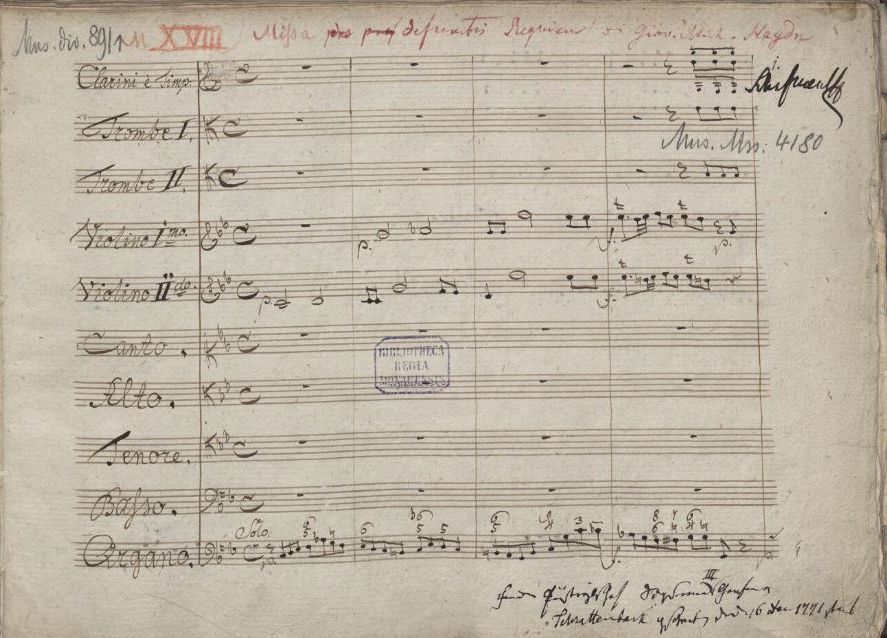 Mus. div. 89/1 XVIII Missa pro defunctis Requiem di Giov. Mich. Haydn
Clarini è Timp.
Trombe I.
Mus. Mss. 4180
Trombe II.
Violino Imo.
p.
Violino IIdo.
p.
Canto.
BIBLIOTHECA
REGIA
MONACENSIS
Alto.
Tenore.
Basso.
Solo.
Organo.
III
Schrattenbach 16 1771